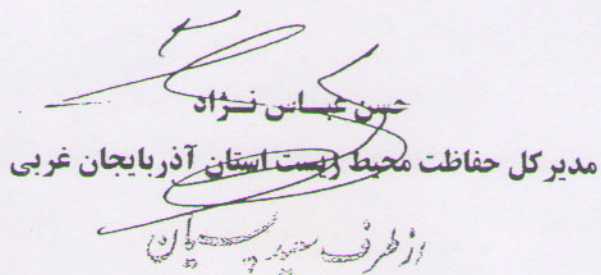 حسن عباس نژاد
مدیر کل حفاظت محیط زیست استان آذربایجان غربی
از طرف